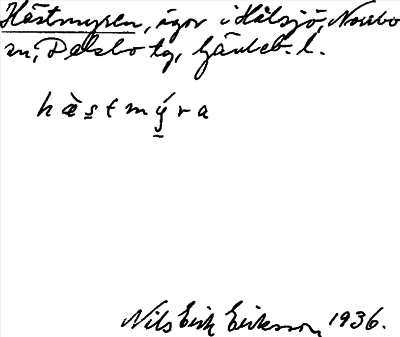 Hästmyren, ägor i Hålsjö, Norrbo
sn, Delsbo tg, Gävleb. l.
h æ̀ s t m ý r a
Nils Erik Eriksson 1936.